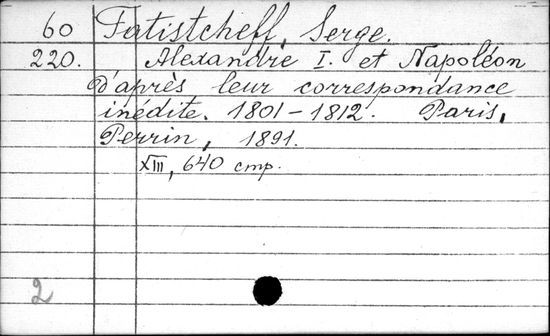 60 Fatistcheff, Serge.
220. Alexandre I. et Napoléon
d'après leur correspondance
inédite. 1801-1812. Paris,
Perrin, 1891.
XIII, 640 cmp.
2